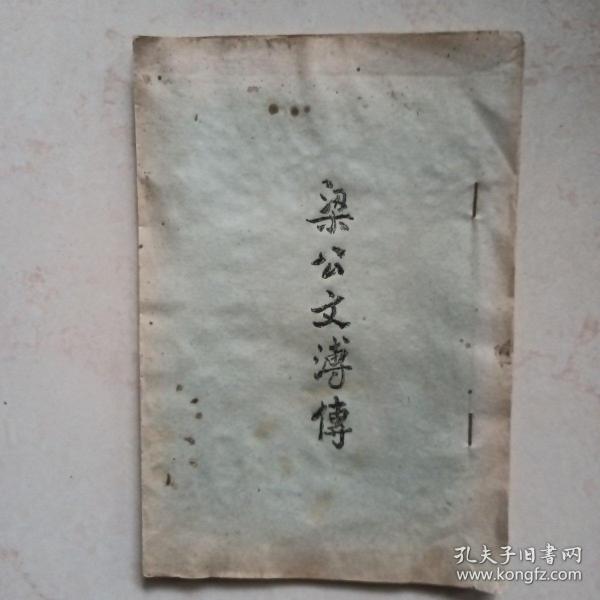 梁公文溥傳
孔夫子旧書网
www.kongfz.com